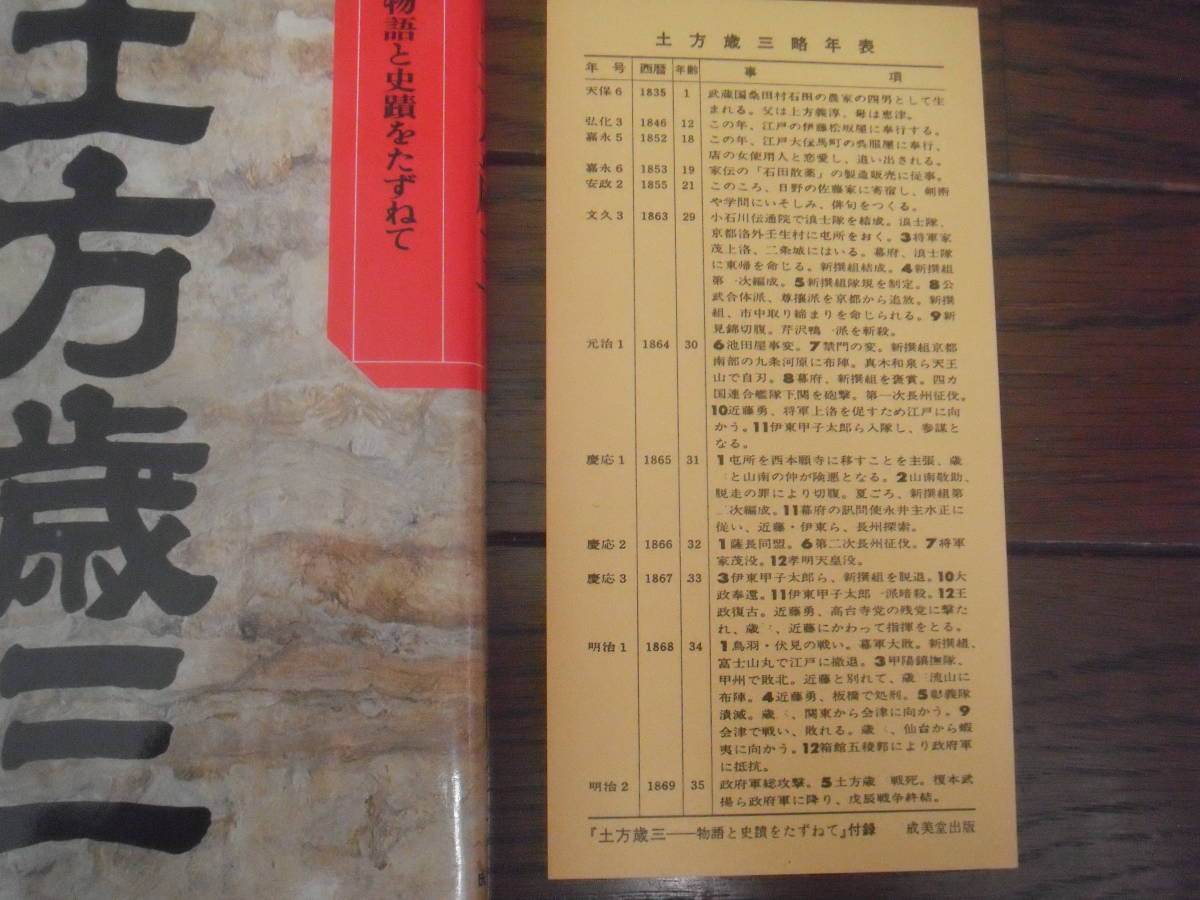 土方歳三
物語と史蹟をたずねて
土方歳三略年表
年号 西暦 年齢 事項
天保6 1835 1 武蔵国桑田村石田の農家の四男として生
まれる。父は土方義淳、母は恵津。
弘化3 1846 12 この年、江戸の伊藤松坂屋に奉行する。
嘉永5 1852 18 この年、江戸大伝馬町の呉服屋に奉行、
店の女使用人と恋愛し、追い出される。
嘉永6 1853 19 家伝の「石田散薬」の製造販売に従事。
安政2 1855 21 このころ、日野の佐藤家に寄宿し、剣術
や学問にいそしみ、俳句をつくる。
文久3 1863 29 小石川伝通院で浪士隊を結成。浪士隊、
京都洛外壬生村に屯所をおく。3将軍家
茂上洛、二条城にはいる。幕府、浪士隊
に東帰を命じる。新撰組結成。4新撰組
第一次編成。5新撰組隊規を制定。8公
武合体派、尊攘派を京都から追放。新撰
組、市中取り締まりを命じられる。9新
見錦切腹。芹沢鴨一派を斬殺。
元治1 1864 30 6池田屋事変。7禁門の変。新撰組京都
南部の九条河原に布陣。真木和泉ら天王
山で自刃。8幕府、新撰組を褒賞。四カ
国連合艦隊下関を砲撃。第一次長州征伐。
10近藤勇、将軍上洛を促すため江戸に向
かう。11伊東甲子太郎ら入隊し、参謀と
なる。
慶応1 1865 31 1屯所を西本願寺に移すことを主張、歳
三と山南の仲が険悪となる。2山南敬助、
脱走の罪により切腹。夏ごろ、新撰組第
二次編成。11幕府の訊問使永井主水正に
従い、近藤・伊東ら、長州探索。
慶応2 1866 32 1薩長同盟。6第二次長州征伐。7将軍
家茂没。12孝明天皇没。
慶応3 1867 33 3伊東甲子太郎ら、新撰組を脱退。10大
政奉還。11伊東甲子太郎一派暗殺。12王
政復古。近藤勇、高台寺党の残党に撃た
れ、歳三、近藤にかわって指揮をとる。
明治1 1868 34 1鳥羽・伏見の戦い。幕軍大敗。新撰組、
富士山丸で江戸に撤退。3甲陽鎮撫隊、
甲州で敗北。近藤と別れて、歳三流山に
布陣。4近藤勇、板橋で処刑。5彰義隊
潰滅。歳三、関東から会津に向かう。9
会津で戦い、敗れる。歳三、仙台から蝦
夷に向かう。12箱館五稜郭により政府軍
に抵抗。
明治2 1869 35 政府軍総攻撃。5土方歳三戦死。榎本武
揚ら政府軍に降り、戊辰戦争終結。
『土方歳三――物語と史蹟をたずねて』付録 成美堂出版